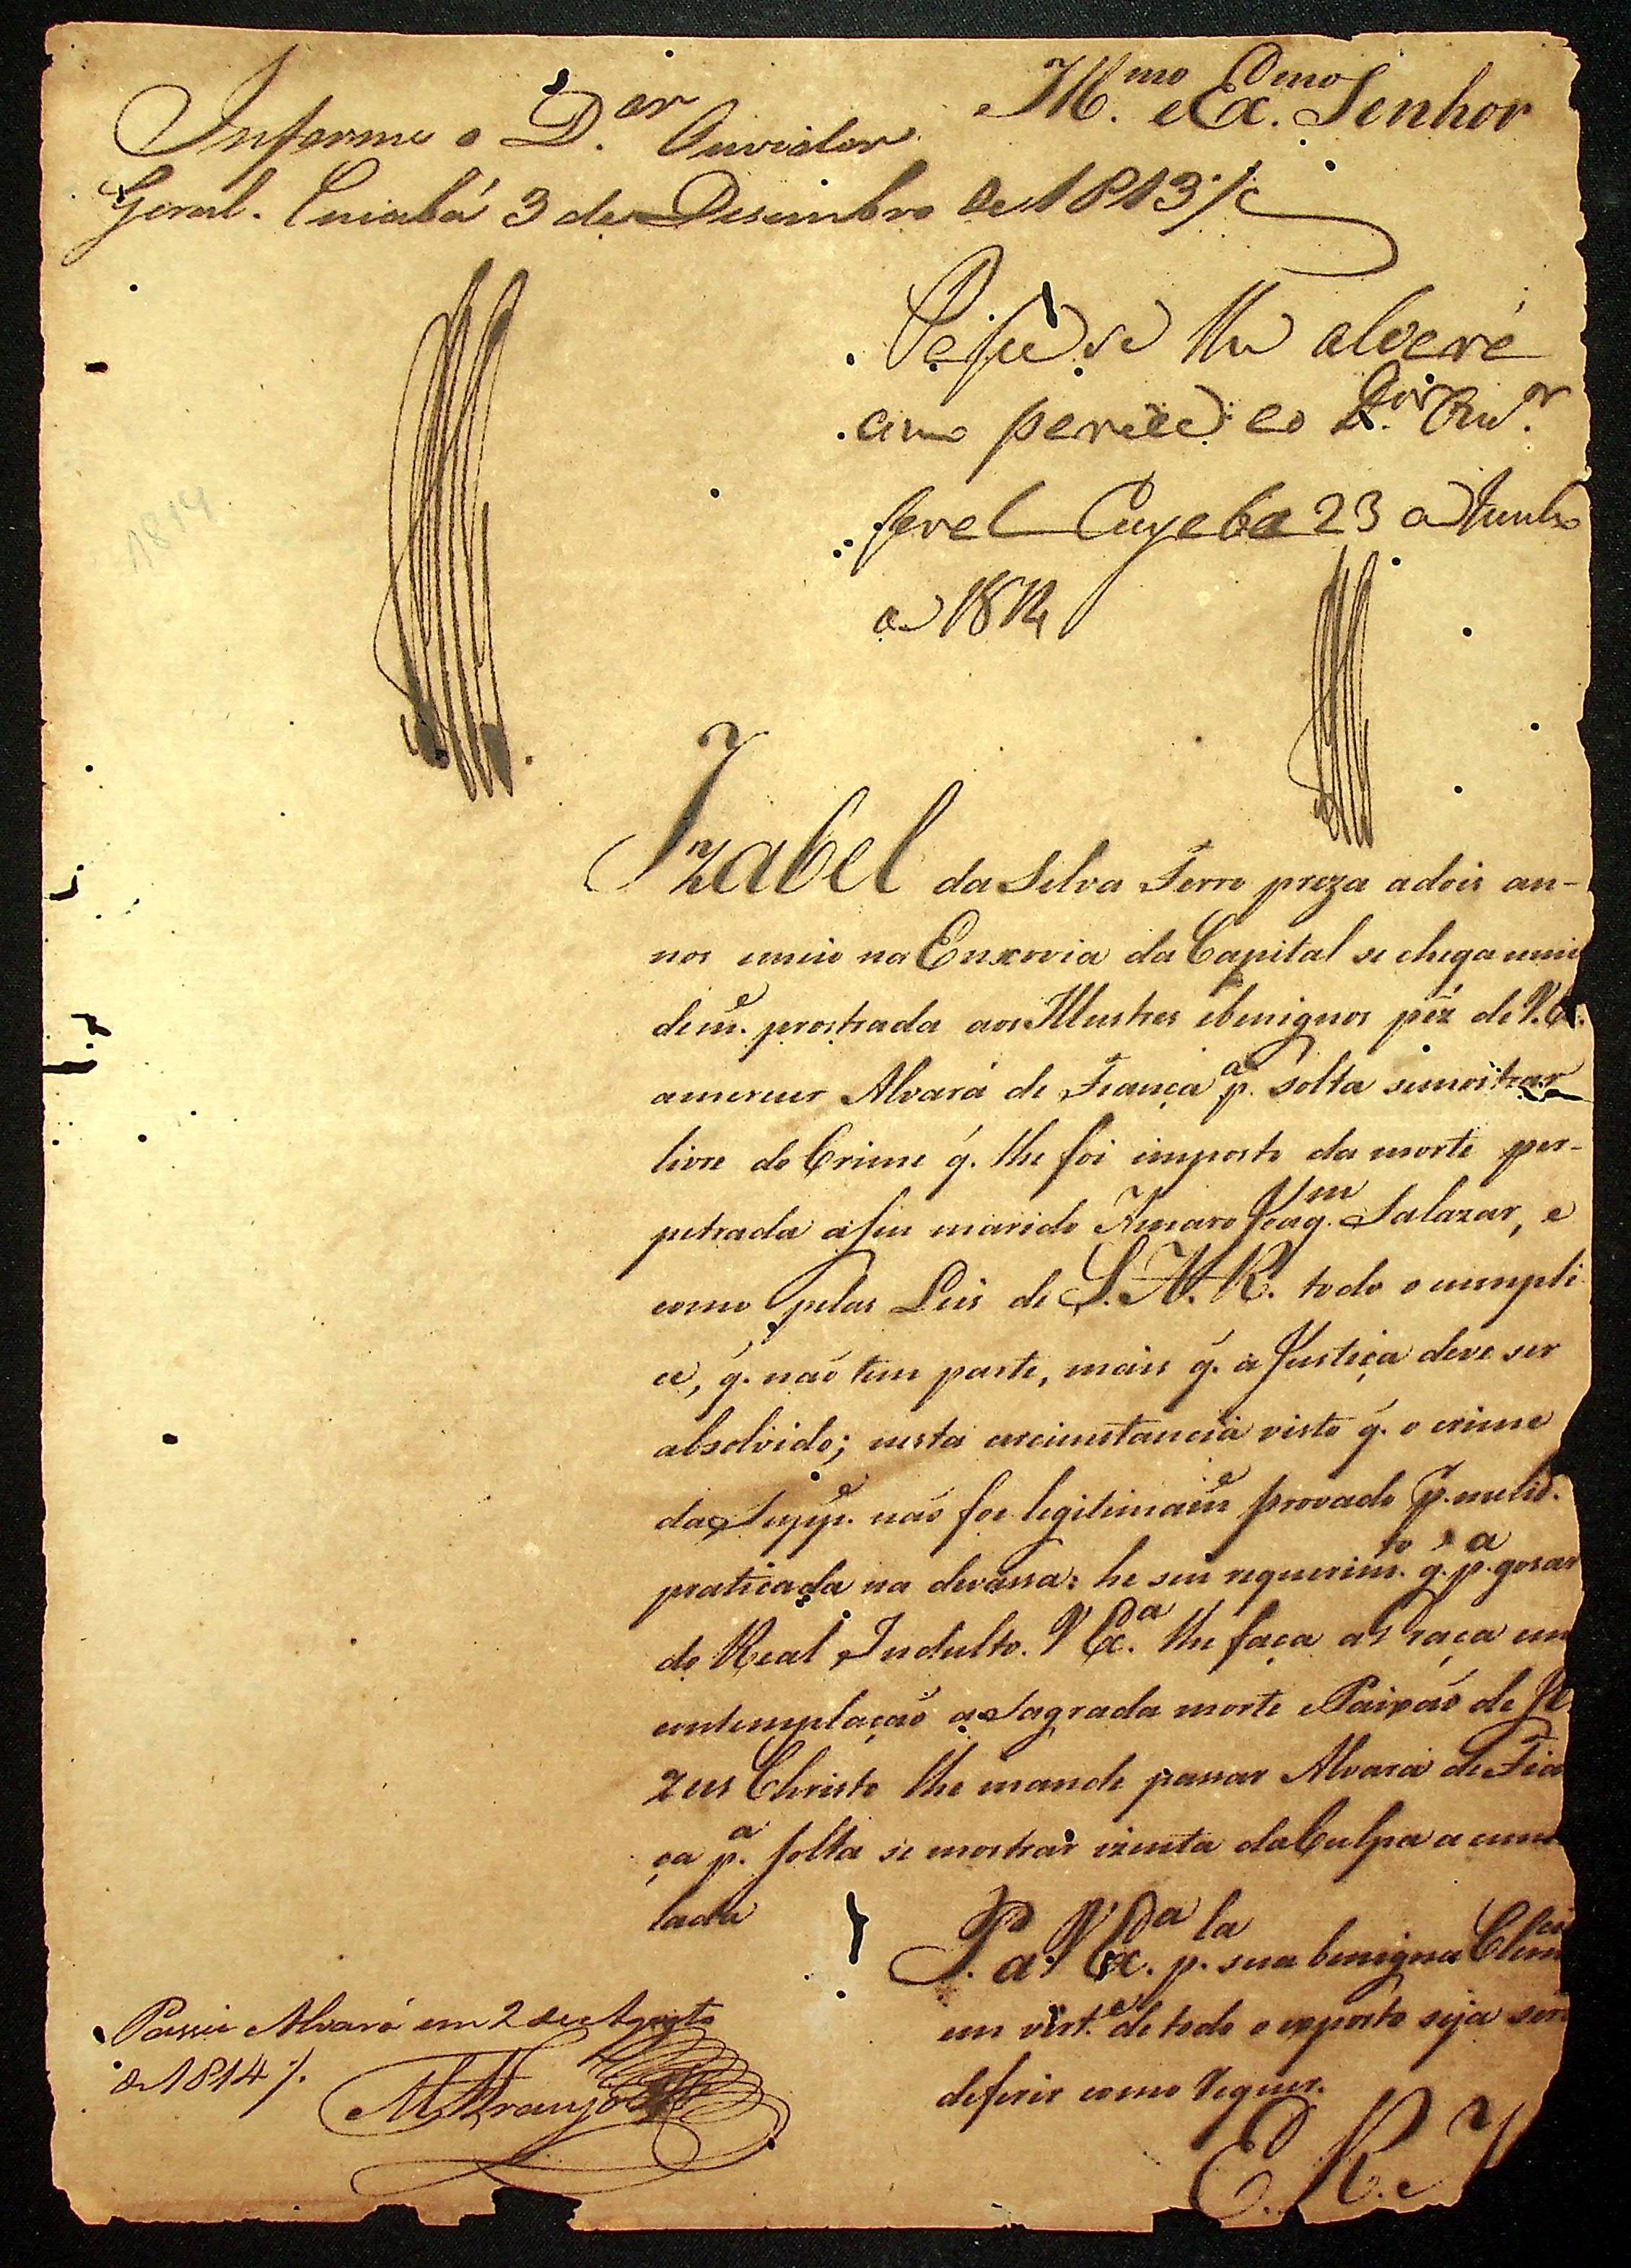 Informe o D.or Ouvidor
Geral. Cuiabá 3 de Desembro de 1813 /.
Ill.mo e Ex.mo Senhor
Pase se lhe alvará
como parece ao D.or Ouv.or
geral Cuyaba 23 de Junho
de 1814
1814
Izabel da Silva Ferro preza a dois an-
nos emeio na Enxovia da Capital se chega umil
dem.e prostrada aos Illustres ebenignos péz de V. Ex.
amerecer Alvará de Fiança p.a solta semostrar
livre do Crime q. lhe foi imposto da morte per-
petrada aseu marido Amaro Joaq.m Salazar, e
como pelas Leis de S. A. R. todo o cumpli
ce, q. não tem parte, mais q. a Justiça deve ser
absolvido; nesta circunstancia visto q. o crime
da Supp.e não foi legitimam.e provado p.
praticada na devassa: he seu requerim.to q. p.a gosar
do Real Indulto. V Ex.a lhe faça a Graça em
contemplação a Sagrada morte e Paixão de Je
zus Christo lhe mande passar Alvará de Fia
ça p.a solta se mostrar izenta da Culpa a cumu
lada
P. a V Ex.a p.la sua benigna Clem
em virt.e de todo o exposto seja ser
deferir como requer.
E. R. M
Passei Alvará em 2 de Agosto
de 1814 /.
Araujo